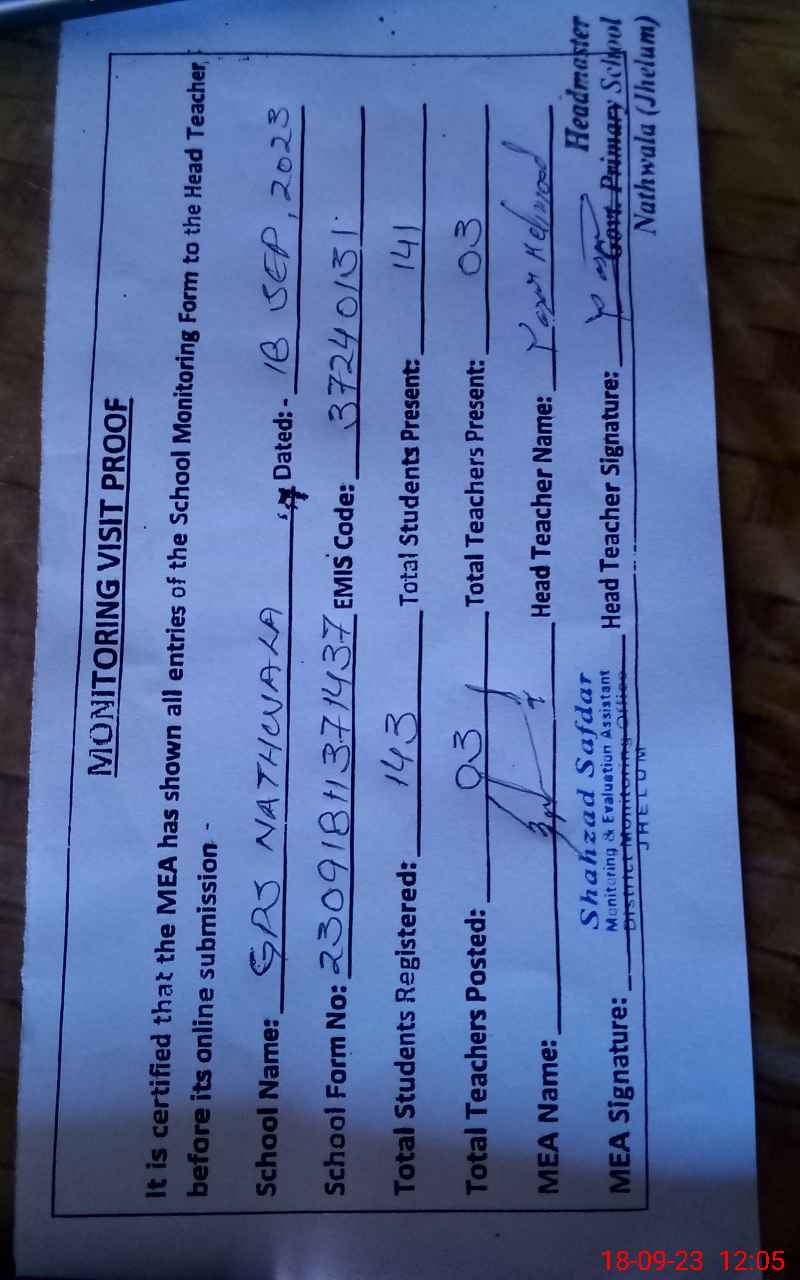 MONITORING VISIT PROOF
It is certified that the MEA has shown all entries of the School Monitoring Form to the Head Teacher
before its online submission -
School Name: GPS NATHWALA Dated: - 18 SEP, 2023
School Form No: 23091811371437 EMIS Code: 37240131
Total Students Registered: 143 Total Students Present: 141
Total Teachers Posted: 03 Total Teachers Present: 03
MEA Name: Head Teacher Name:
Shahzad Safdar
Monitoring & Evaluation Assistant
District Monitoring Office
JHELUM
MEA Signature: Head Teacher Signature:
Headmaster
Govt. Primary School
Nathwala (Jhelum)
18-09-23 12:05